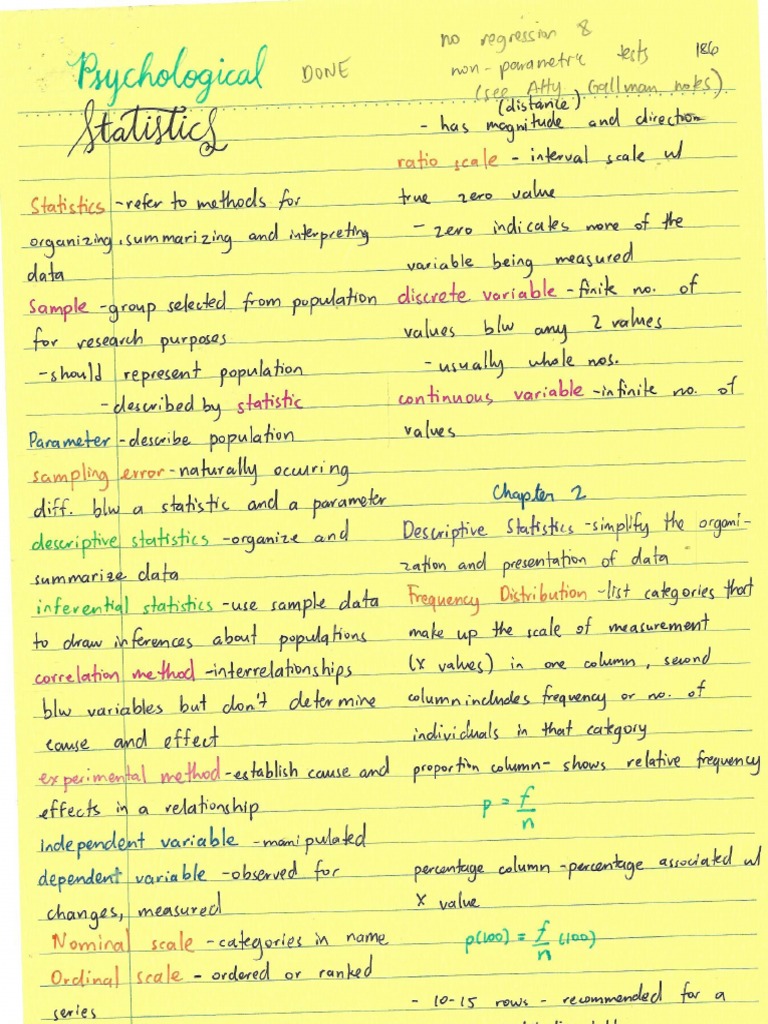 Psychological
Statistics
DONE
no regression &
non-parametric tests
(see Atty Gallman notes)
186
Statistics - refer to methods for
organizing, summarizing and interpreting
data
Sample - group selected from population
for research purposes
- should represent population
- described by statistic
Parameter - describe population
sampling error - naturally occuring
diff. b/w a statistic and a parameter
descriptive statistics - organize and
summarize data
inferential statistics - use sample data
to draw inferences about populations
correlation method - interrelationships
b/w variables but don't determine
cause and effect
experimental method - establish cause and
effects in a relationship
independent variable - manipulated
dependent variable - observed for
changes, measured
Nominal scale - categories in name
Ordinal scale - ordered or ranked
series
(distance)
- has magnitude and direction
ratio scale - interval scale w/
true zero value
- zero indicates none of the
variable being measured
discrete variable - finite no. of
values b/w any 2 values
- usually whole nos.
continuous variable - infinite no. of
values
Chapter 2
Descriptive Statistics - simplify the organi-
zation and presentation of data
Frequency Distribution - list categories that
make up the scale of measurement
(X values) in one column, second
column includes frequency or no. of
individuals in that category
proportion column - shows relative frequency
p = f/n
percentage column - percentage associated w/
X value
p(100) = f/n (100)
- 10-15 rows - recommended for a